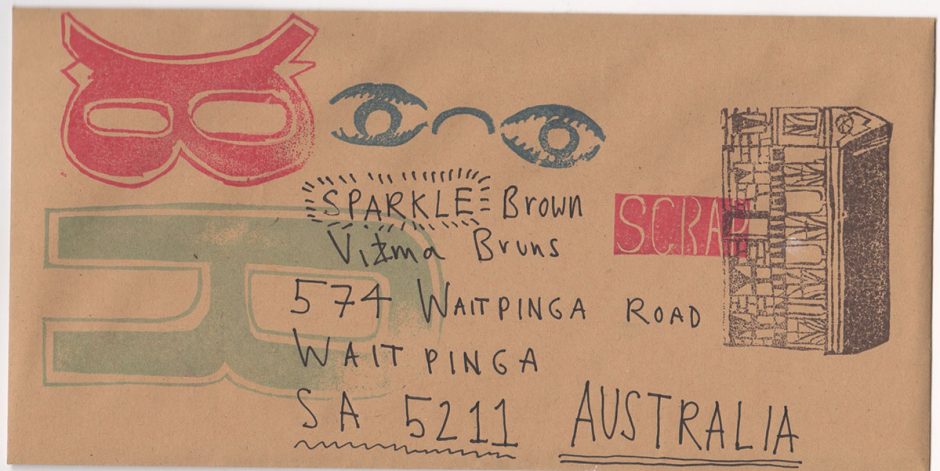 SPARKLE Brown
Vižma Bruns
574 WAITPINGA ROAD
WAITPINGA
SA 5211 AUSTRALIA
SCRAP
R